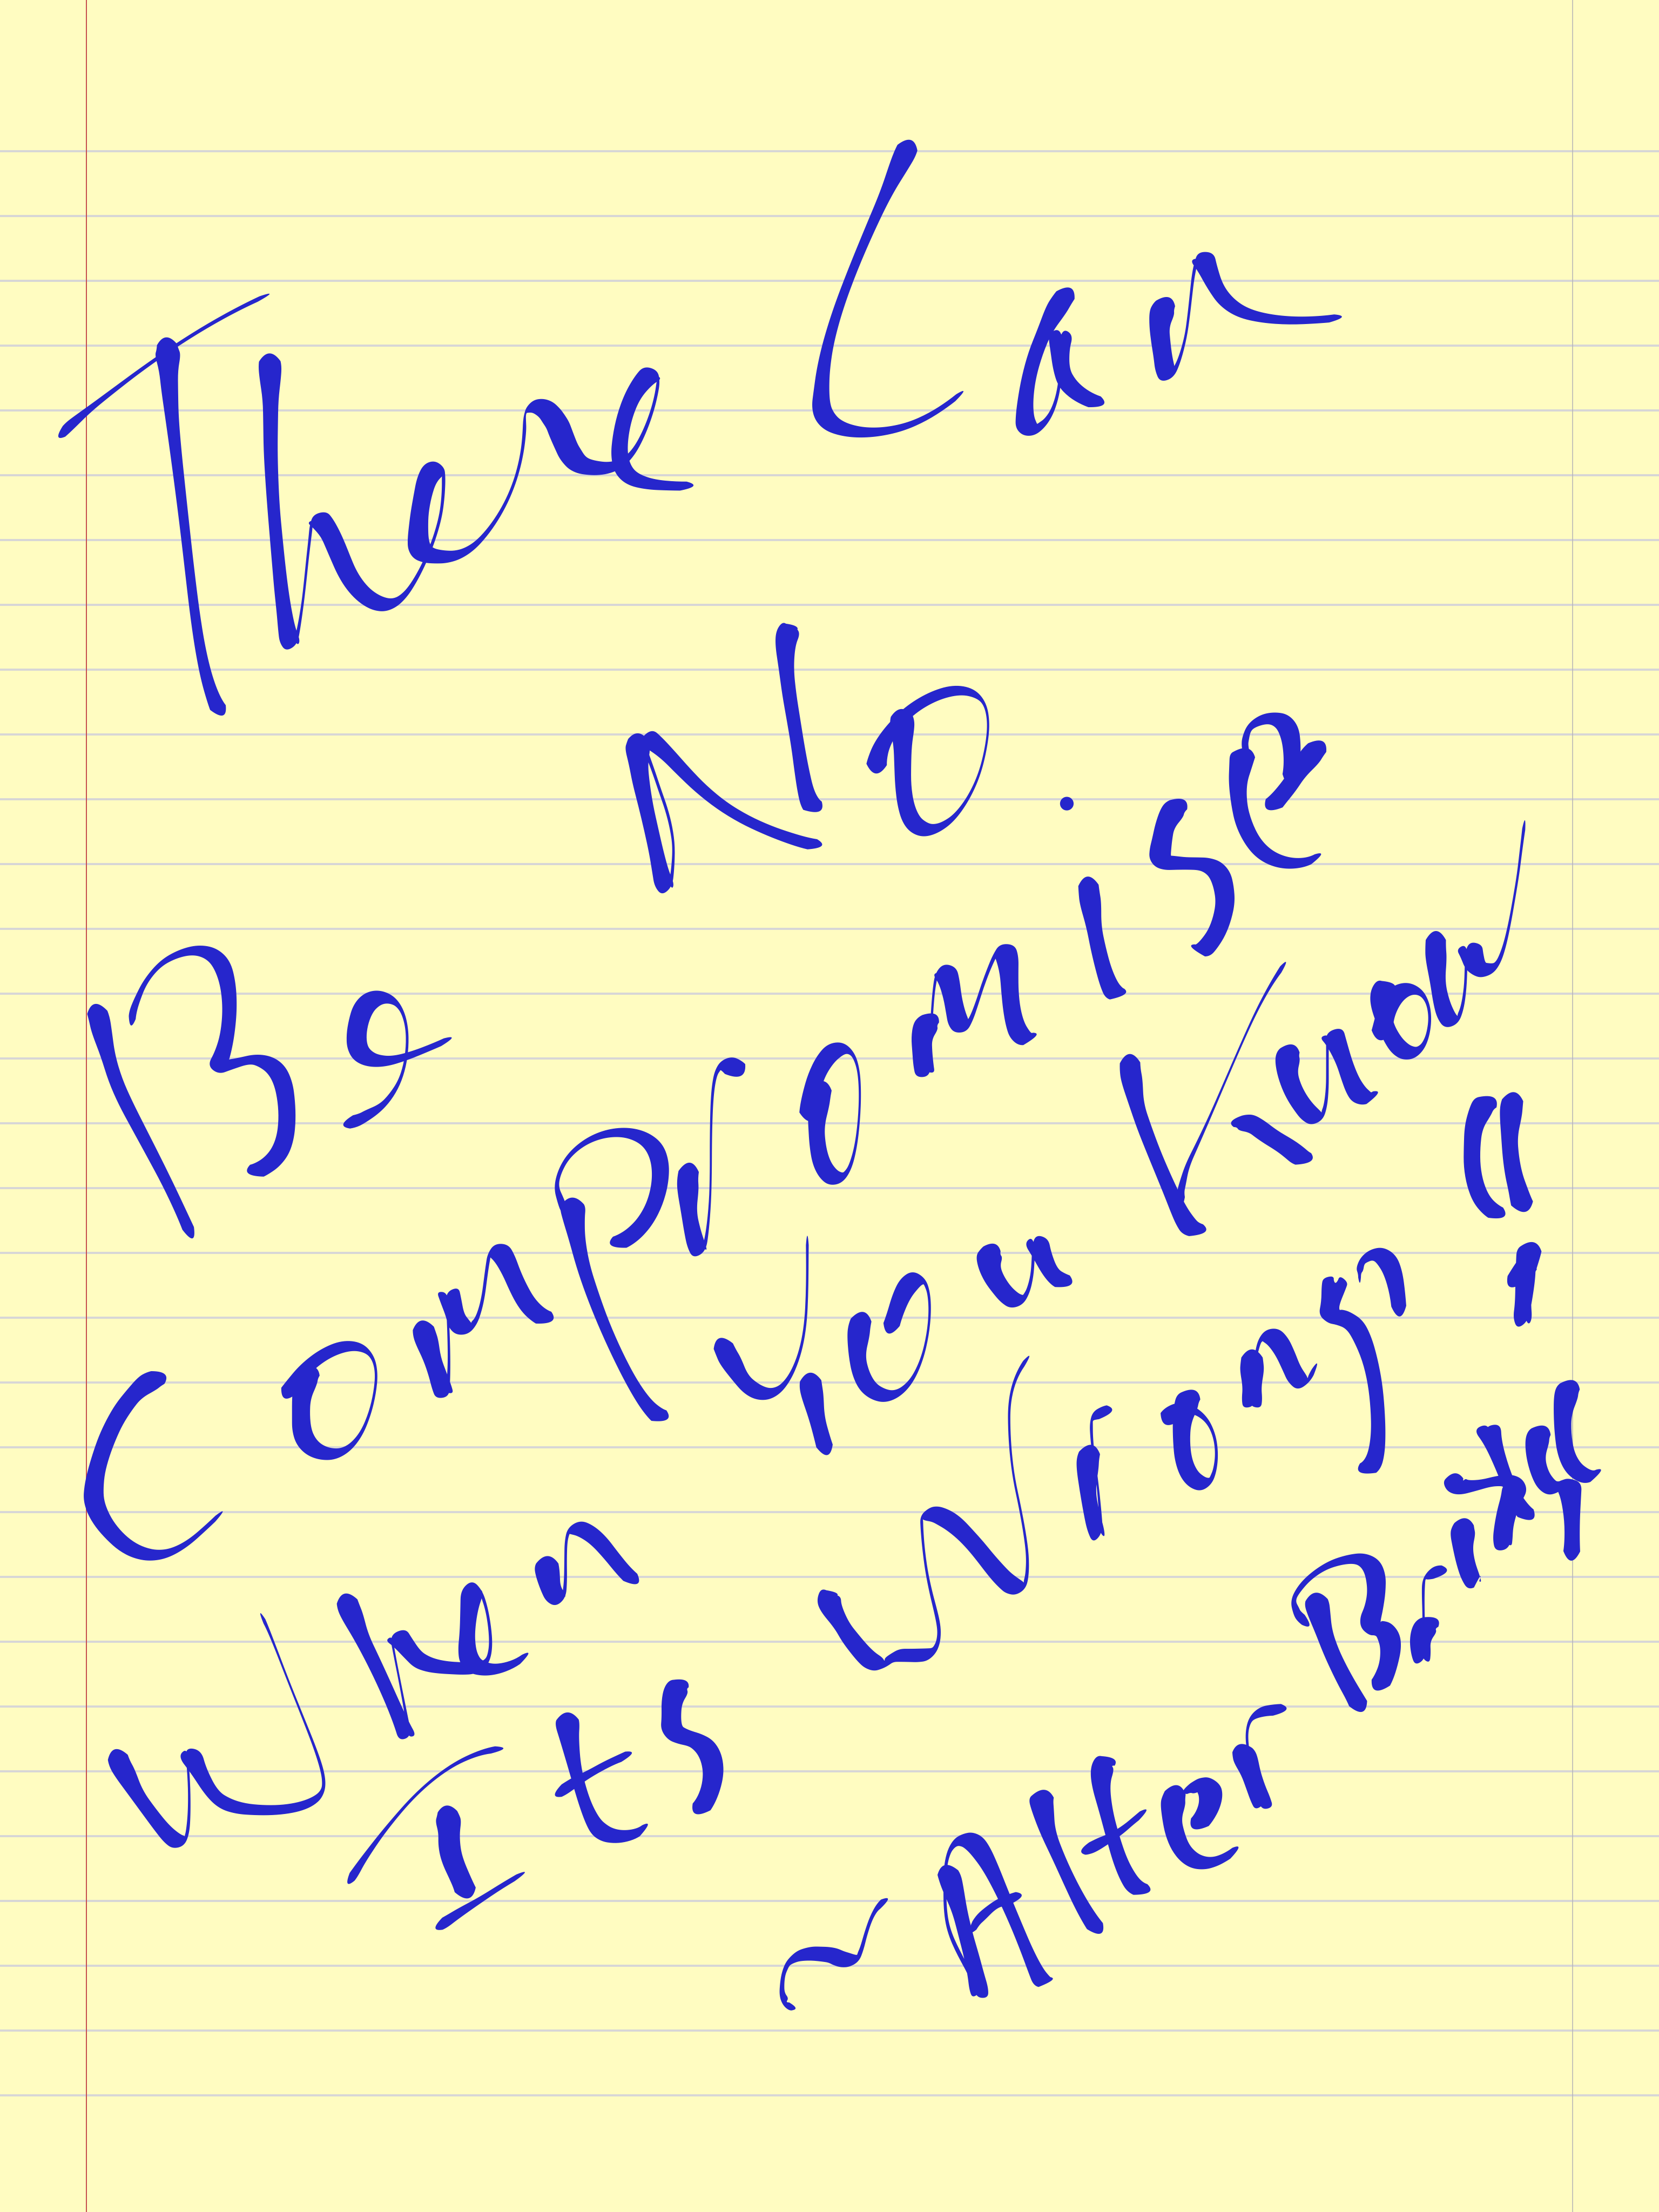 There Can
Be No
Compromise
When You Know
Its Wrong
~Alter